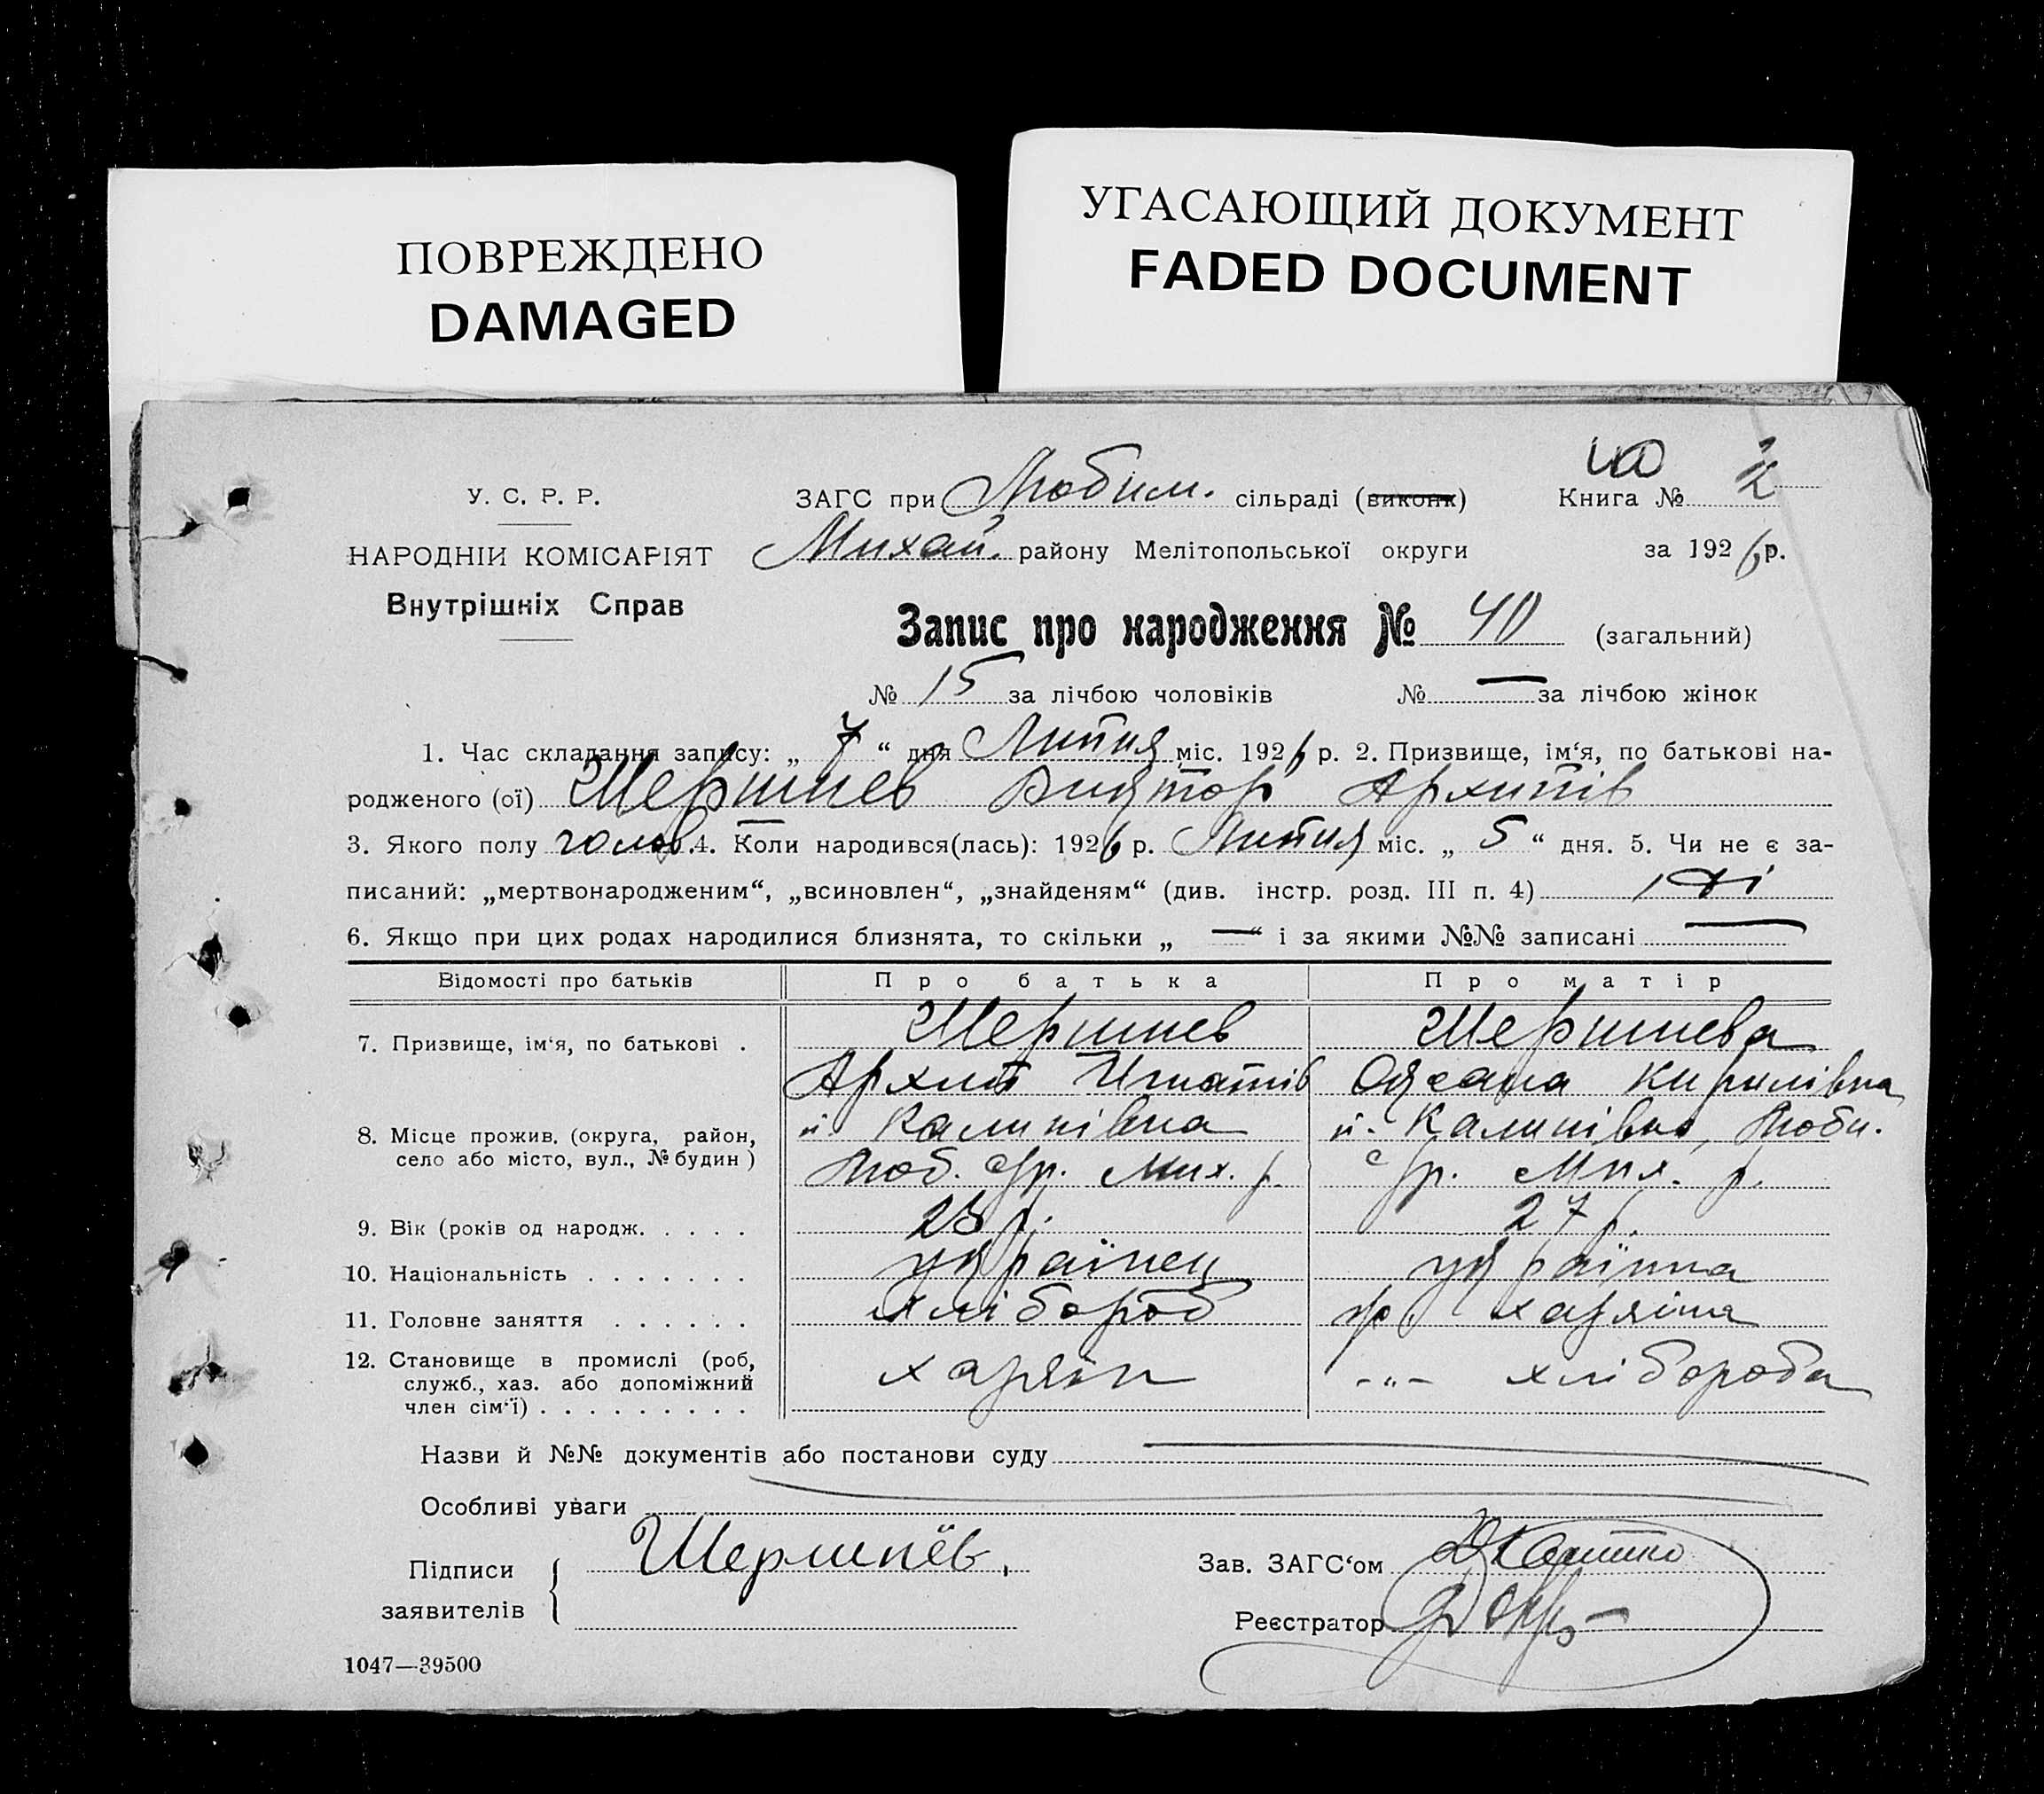 ПОВРЕЖДЕНО
DAMAGED
УГАСАЮЩИЙ ДОКУМЕНТ
FADED DOCUMENT
40
У. С. Р. Р.
ЗАГС при Любим. сільраді (виконк) Книга № 2
НАРОДНІЙ КОМІСАРІЯТ
Михай. району Мелітопольської округи за 1926 р.
Внутрішніх Справ
Запис про народження № 40 (загальний)
№ 15 за лічбою чоловіків № — за лічбою жінок
1. Час складання запису: „ 7 “ дня Липня міс. 1926 р. 2. Призвище, ім‘я, по батькові на-
родженого (ої) Шершнев Виктор Архипів
3. Якого полу чолов. 4. Коли народився(лась): 1926 р. Липня міс. „ 5 “ дня. 5. Чи не є за-
писаний: „мертвонародженим“, „всиновлен“, „знайденям“ (див. інстр. розд. III п. 4) ні
6. Якщо при цих родах народилися близнята, то скільки „ — “ і за якими №№ записані —
Відомості про батьків Про батька Про матір
7. Призвище, ім‘я, по батькові . Шершнев Шершнева
Архип Игнатів Оксана Кирилівна
8. Місце прожив. (округа, район, село або місто, вул., № будин ) Калинівка Калинівка, Люби.
Люб. с/р. Мих. р. с/р. Мих. р.
9. Вік (років од народж. . . . . 23 р. 27 р.
10. Національність . . . . . . . українец українка
11. Головне заняття . . . . . . хлібороб хазяїна
12. Становище в промислі (роб, служб., хаз. або допоміжний член сім‘ї) . . . . . . . . . хазяїн -"- хлібороба
Назви й №№ документів або постанови суду
Особливі уваги
Підписи заявителів Шершнёв.
Зав. ЗАГС‘ом
Реєстратор
1047—39500